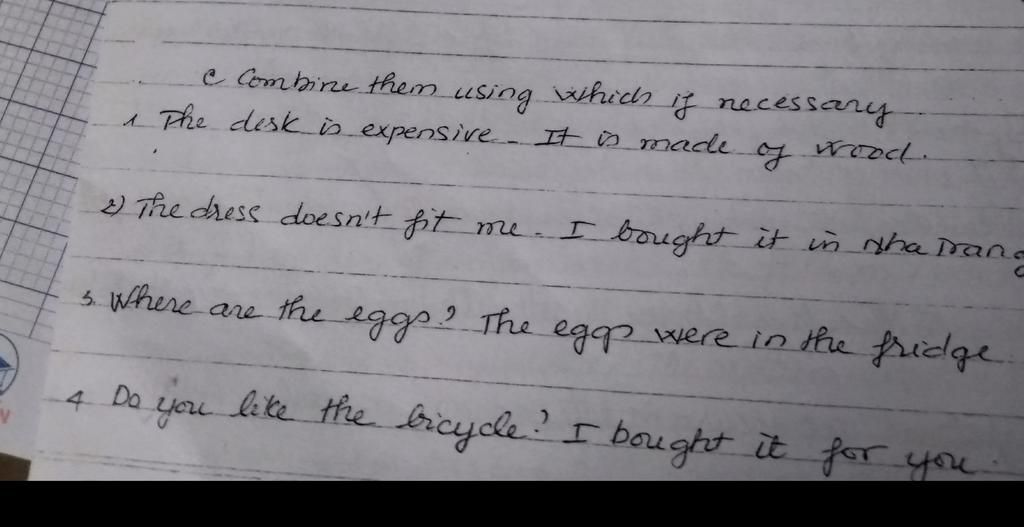 c Combine them using which if necessary
1 The desk is expensive. It is made of wood.
2) The dress doesn't fit me. I bought it in Nha Trang
3. Where are the eggs? The eggs were in the fridge
4 Do you like the bicycle? I bought it for you.